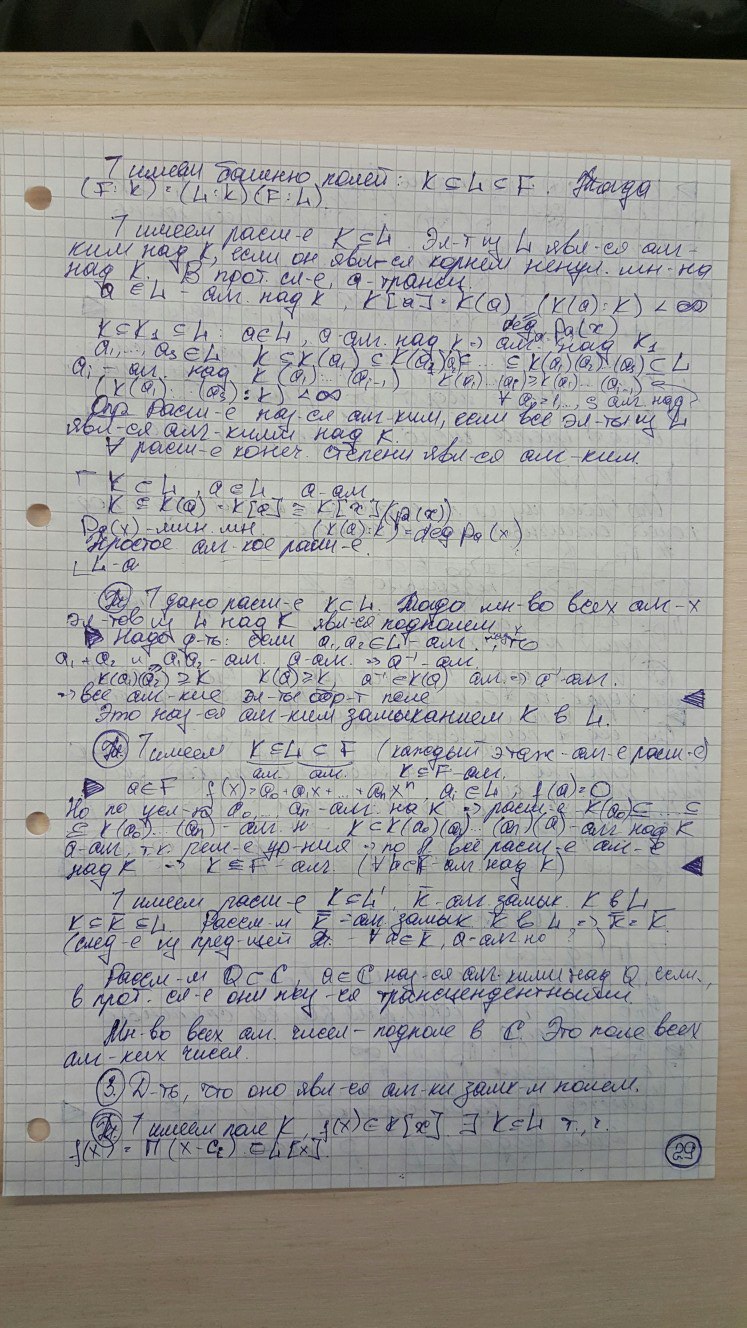 ⅂ имеем башню полей: K ⊆ L ⊆ F. Тогда
(F:K) = (L:K)(F:L).
⅂ имеем расш-е K ⊆ L. Эл-т из L явл-ся алг-
ким над K, если он явл-ся корнем ненул. мн-на
над K. В прот. сл-е, a-трансц.
a ∈ L - алг. над K, K[a] = K(a), (K(a):K) < ∞
deg Pa(x)
K ⊆ K1 ⊆ L: a ∈ L, a-алг. над K ⇒ алг. над K1
a1, ..., as ∈ L K ⊆ K(a1) ⊆ K(a1)(a2) ⊆ ... ⊆ K(a1)(a2)..(as) ⊆ L
ai - алг. над K(a1)...(ai-1)
(K(a1)...(as):K) < ∞
Опр. Расш-е наз-ся алг-ким, если все эл-ты из L
явл-ся алг-кими над K.
∀ расш-е конеч. степени явл-ся алг-ким.
K ⊆ L, a ∈ L a-алг.
K ⊆ K(a) = K[a] ≅ K[x]/(Pa(x))
Pa(x) - мин. мн. (K(a):K) = deg Pa(x)
Простое алг-кое расш-е.
Т. ⅂ дано расш-е K ⊆ L. Тогда мн-во всех алг-х
эл-тов из L над K явл-ся подполем.
▶ Надо д-ть: если a1, a2 ∈ L - алг. над K, то
a1 + a2 и a1a2 - алг. a-алг. ⇒ a⁻¹-алг.
K(a1)(a2) ⊇ K K(a) ⊇ K, a⁻¹ ∈ K(a) алг ⇒ a⁻¹-алг.
⇒ все алг-кие эл-ты обр-т поле ◀
Это наз-ся алг-ким замыканием K в L.
Т. ⅂ имеем K ⊆ L ⊆ F (каждый этаж - алг-е расш-е)
алг. алг. K ⊆ F-алг.
▶ a ∈ F f(x) = a0 + a1x + ... + anxⁿ, ai ∈ L, f(a) = 0
Но по усл-ю a0, ... an - алг. над K ⇒ расш-е K(a0) ⊆ ... ⊆
⊆ K(a0)...(an) - алг. и K ⊆ K(a0)(a1)...(an)(a) - алг над K
a-алг, т.к. реш-е ур-ния ⇒ все расш-е алг-е
над K ⇒ K ⊆ F - алг. (∀ a ∈ F алг над K) ◀
⅂ имеем расш-е K ⊆ L, K̅-алг. замык. K в L
K ⊆ K̅ ⊆ L. Рассм-м K̿ = алг. замык K̅ в L, ⇒ K̿ = K̅.
(след-е из пред-щей Т.
Рассм-м Q ⊂ C, a ∈ C наз-ся алг-кими над Q, если..,
в прот. сл-е они наз-ся трансцендентными.
Мн-во всех алг. чисел - подполе в C. Это поле всех
алг-ких чисел.
З. Д-ть, что оно явл-ся алг-ки замк-м полем.
Т. ⅂ имеем поле K, f(x) ∈ K[x]. ∃ K ⊆ L т.ч.
f(x) = П(x-ci) ∈ L[x].